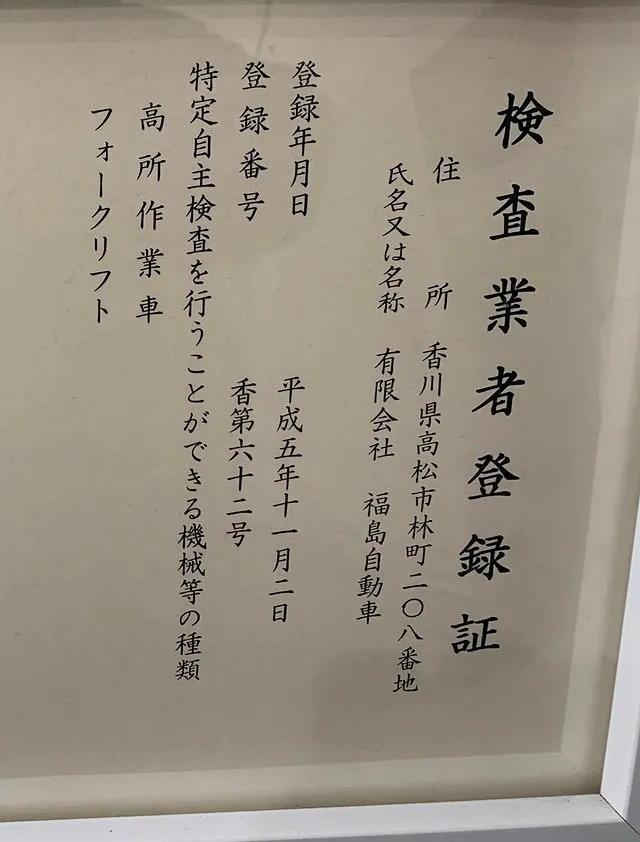 検査業者登録証
住所 香川県高松市林町二〇八番地
氏名又は名称 有限会社 福島自動車
登録年月日 平成五年十一月二日
登録番号 香第六十二号
特定自主検査を行うことができる機械等の種類
高所作業車
フォークリフト